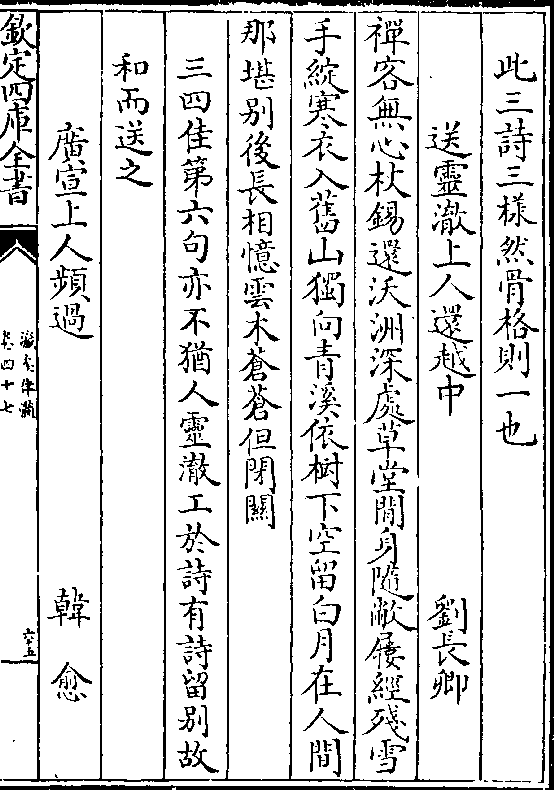 此三詩三樣然骨格則一也
送靈澈上人還越中 劉長卿
禪客無心杖錫還沃洲深處草堂閒身隨敝屨經殘雪
手綻寒衣入舊山獨向青溪依樹下空留白月在人間
那堪别後長相憶雲木蒼蒼但閉關
三四佳第六句亦不猶人靈澈工於詩有詩留别故
和而送之
廣宣上人頻過 韓愈
欽定四庫全書
瀛奎律髓
卷四十七
六五